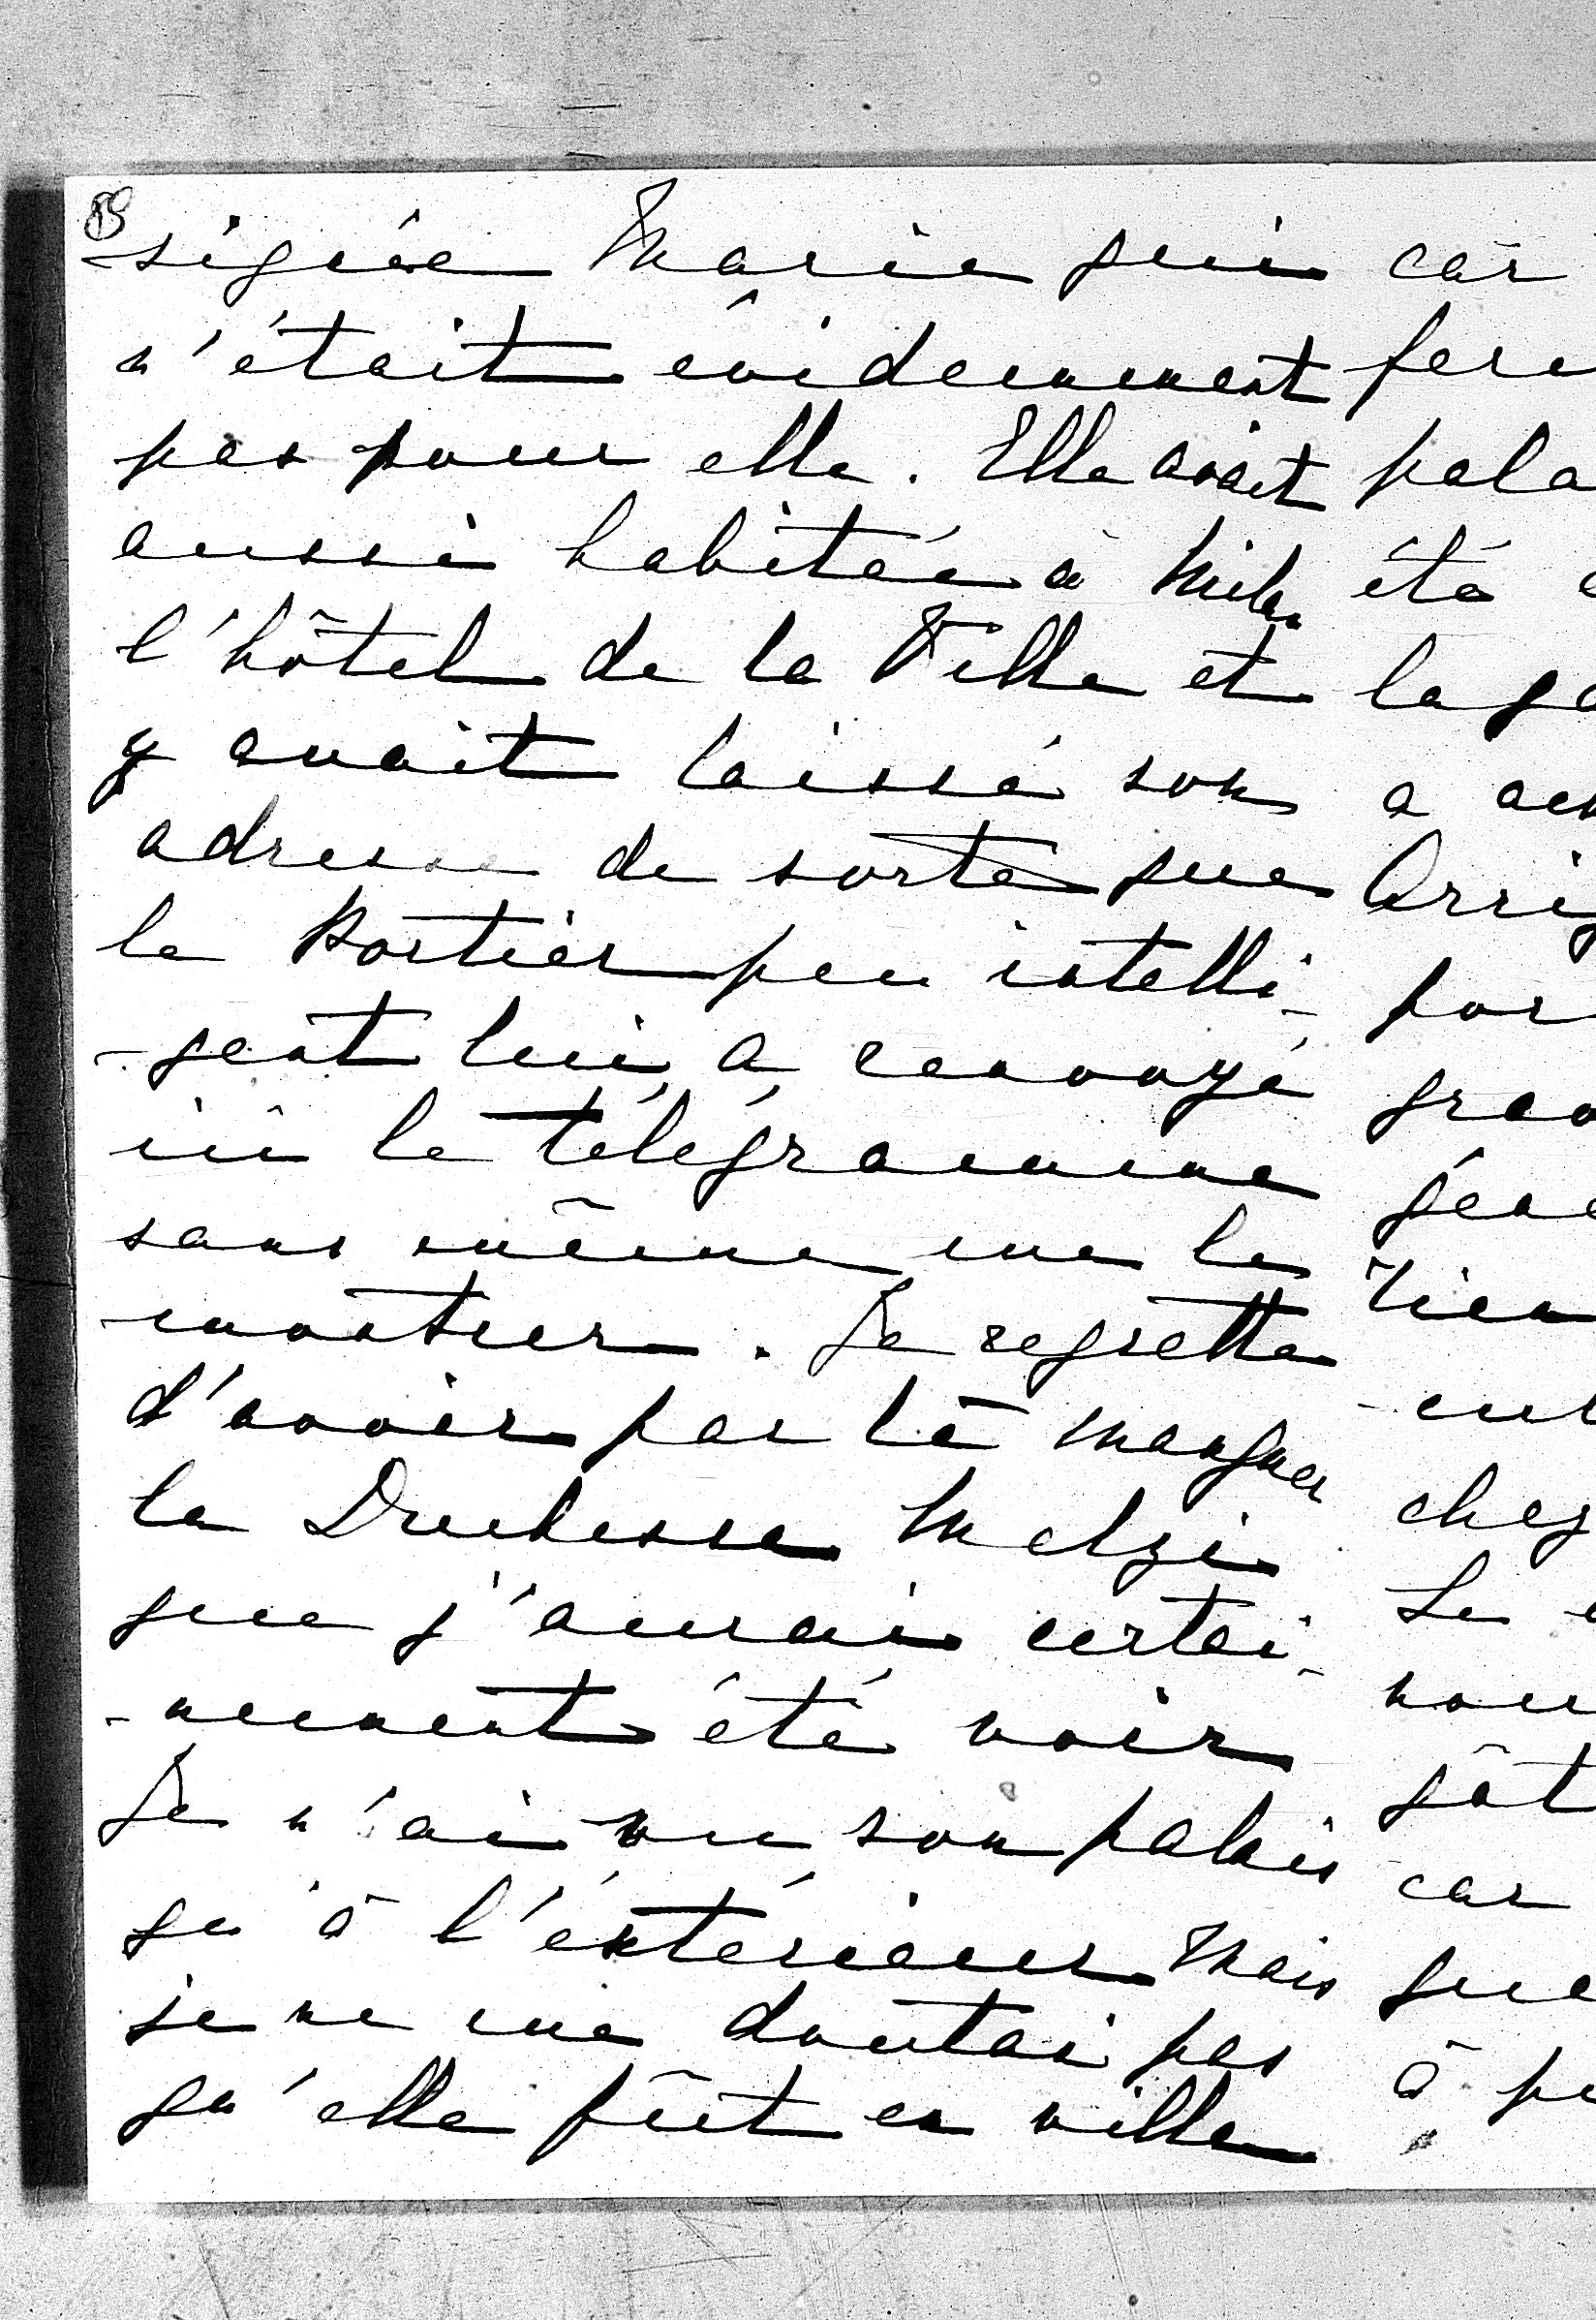 signée Marie qui
n'était évidemment
pas pour elle. Elle avait
aussi habitée à Milan
l'hôtel de la Ville et
y avait laissé son
adresse de sorte que
le Portier peu intelli-
-gent lui a renvoyé
ici le télégramme
sans même me le
montrer. Je regrette
d'avoir par là manquer
la Duchesse Melzi
que j'aurais certai-
-nement été voir
Je n'ai vu son palais
qu'à l'extérieur mais
je ne me doutai pas
qu'elle fût en ville
car
été
la
a
chez
car
que
à